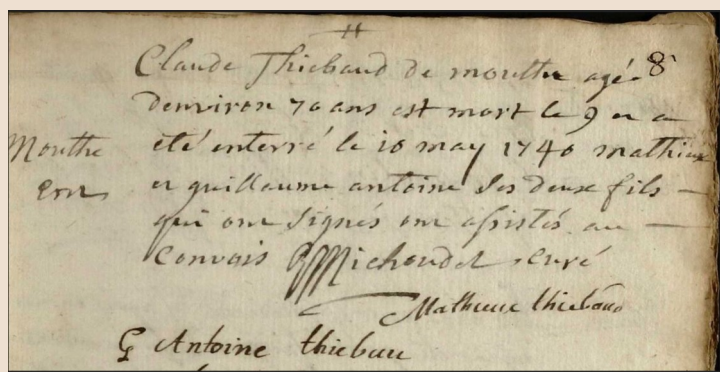 8
Claude Thiebaud de mouthe agé
denviron 70 ans est mort le 9 et a
Mouthe
été enterré le 10 may 1740 mathieu
et guillaume antoine ses deux fils
qui ont signés ont assistés au
Convois Michaudet curé
Mathieu thiebaud
G Antoine thiebau